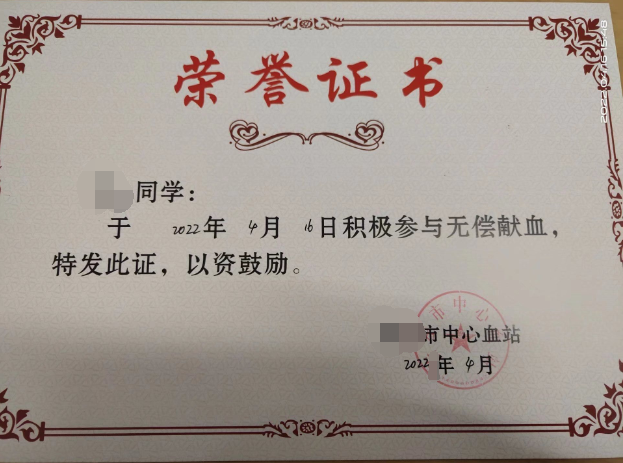 荣誉证书
同学：
于 2022年 4月 16日积极参与无偿献血，
特发此证，以资鼓励。
市中心血站
2022年 4月
市中心